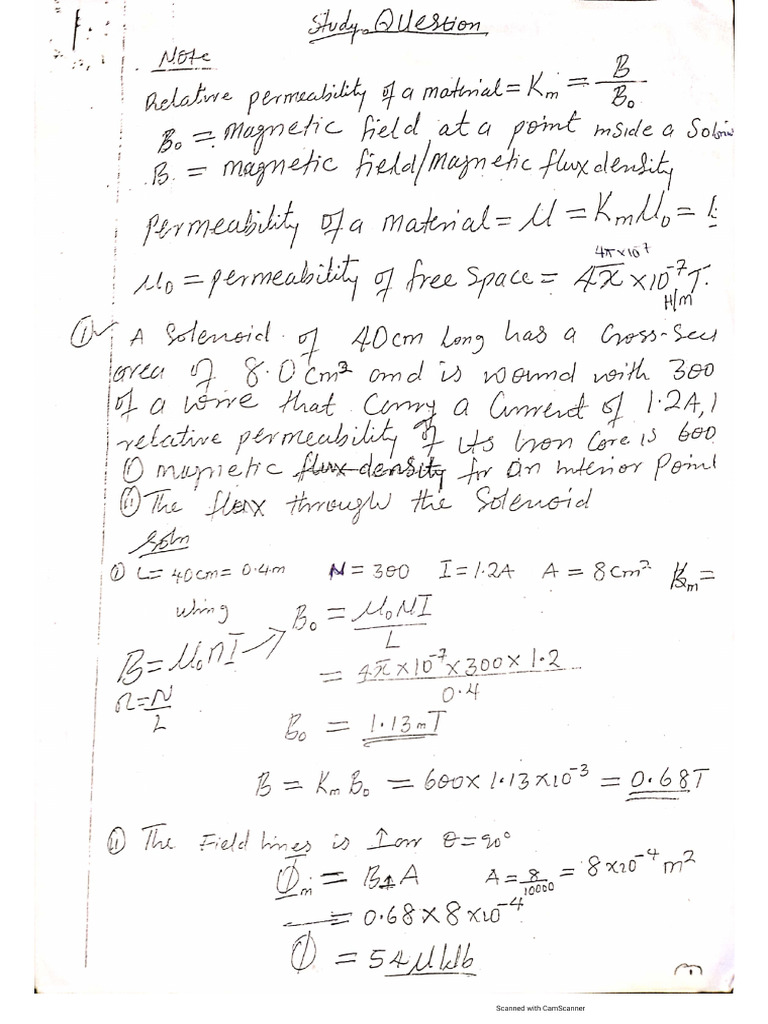 Study Question
Note
Relative permeability of a material = Km = B/B₀
B₀ = Magnetic field at a point inside a
B = magnetic field/Magnetic flux density
Permeability of a material = μ = Kmμ₀ =
4π×10⁷
μ₀ = permeability of free space = 4π × 10⁻⁷ T.
H/m
① A Solenoid of 40cm long has a Cross-Sec
area of 8.0cm² and is wound with 300
of a wire that Carry a Current of 1.2A,
relative permeability of its Iron Core is 600
① magnetic flux density for an interior Point
② The flux through the Solenoid
Soln
① L = 40cm = 0.4m N = 300 I = 1.2A A = 8cm² Km =
using B₀ = μ₀NI/L
B = μ₀nI
= 4π×10⁻⁷×300×1.2/0.4
n = N/L
B₀ = 1.13mT
B = Km B₀ = 600×1.13×10⁻³ = 0.68T
② The Field lines is ⊥ or θ = 90°
Φm = B⊥A A = 8/10000 = 8×10⁻⁴ m²
= 0.68 × 8×10⁻⁴
Φ = 54μWb
1
Scanned with CamScanner